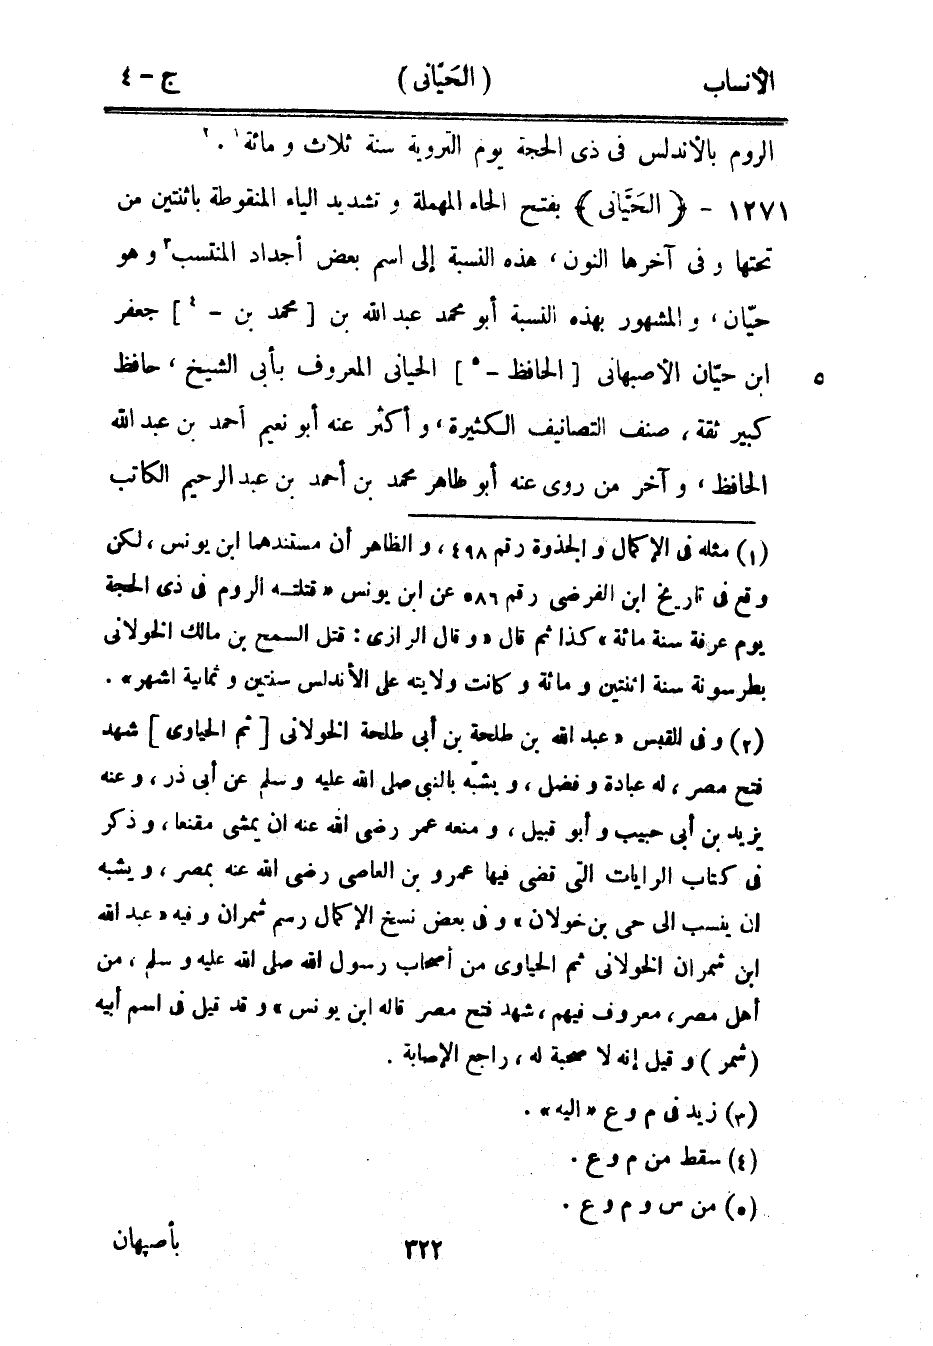 الأنساب (الحَيّانى) ج - ٤
الروم بالأندلس فى ذى الحجة يوم التروية سنة ثلاث و مائة١ . ٢
١٢٧١ - ﴿ الحَيَّانى ﴾ بفتح الحاء المهملة و تشديد الياء المنقوطة باثنتين من
تحتها و فى آخرها النون ، هذه النسبة إلى اسم بعض أجداد المنتسب٣ و هو
حيّان ، و المشهور بهذه النسبة أبو محمد عبد الله بن [ محمد بن - ٤ ] جعفر
ابن حيّان الأصبهانى [ الحافظ - ٥ ] الحيانى المعروف بأبى الشيخ ، حافظ ٥
كبير ثقة ، صنف التصانيف الكثيرة ، و أكثر عنه أبو نعيم أحمد بن عبد الله
الحافظ ، و آخر من روى عنه أبو طاهر محمد بن أحمد بن عبد الرحيم الكاتب
(١) مثله فى الإكمال و الجذوة رقم ٤٩٨ ، و الظاهر أن مستندهما ابن يونس ، لكن
وقع فى تاريخ ابن الفرضى رقم ٥٨٦ عن ابن يونس « قتلته الروم فى ذى الحجة
يوم عرفة سنة مائة » كذا ثم قال « و قال الرازى : قتل السمح بن مالك الخولانى
بطرسونة سنة اثنتين و مائة و كانت ولايته على الأندلس سنتين و ثمانية اشهر » .
(٢) و فى القبس « عبد الله بن طلحة بن أبى طلحة الخولانى [ ثم الحياوى ] شهد
فتح مصر ، له عبادة و فضل ، و يشبّه بالنبى صلى الله عليه و سلم عن أبى ذر ، و عنه
يزيد بن أبى حبيب و أبو قبيل ، و منعه عمر رضى الله عنه ان يمشى مقنعا ، و ذكر
فى كتاب الرايات التى قضى فيها عمرو بن العاصى رضى الله عنه بمصر ، و يشبه
ان ينسب الى حى بن خولان » و فى بعض نسخ الإكمال رسم شمران و فيه « عبد الله
ابن شمران الخولانى ثم الحياوى من أصحاب رسول الله صلى الله عليه و سلم ، من
أهل مصر ، معروف فيهم ، شهد فتح مصر قاله ابن يونس » و قد قيل فى اسم أبيه
(شمر) و قيل إنه لا صحبة له ، راجع الإصابة .
(٣) زيد فى م و ع « اليه » .
(٤) سقط من م و ع .
(٥) من س و م و ع .
٣٢٢ بأصبهان